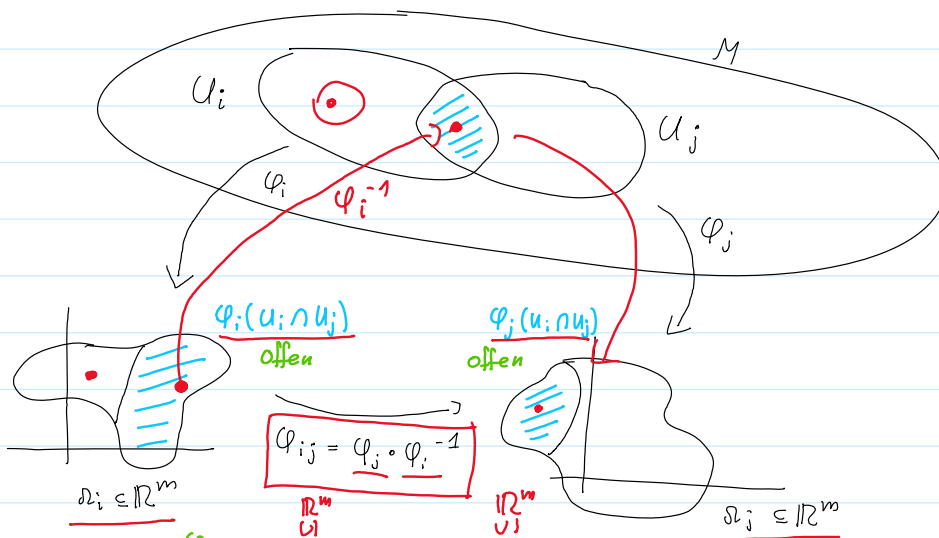 M
U_i
U_j
φ_i
φ_i^{-1}
φ_j
φ_i(U_i ∩ U_j)
offen
φ_j(U_i ∩ U_j)
offen
φ_{ij} = φ_j ∘ φ_i^{-1}
Ω_i ⊆ ℝ^m
ℝ^m
∪|
ℝ^m
∪|
Ω_j ⊆ ℝ^m